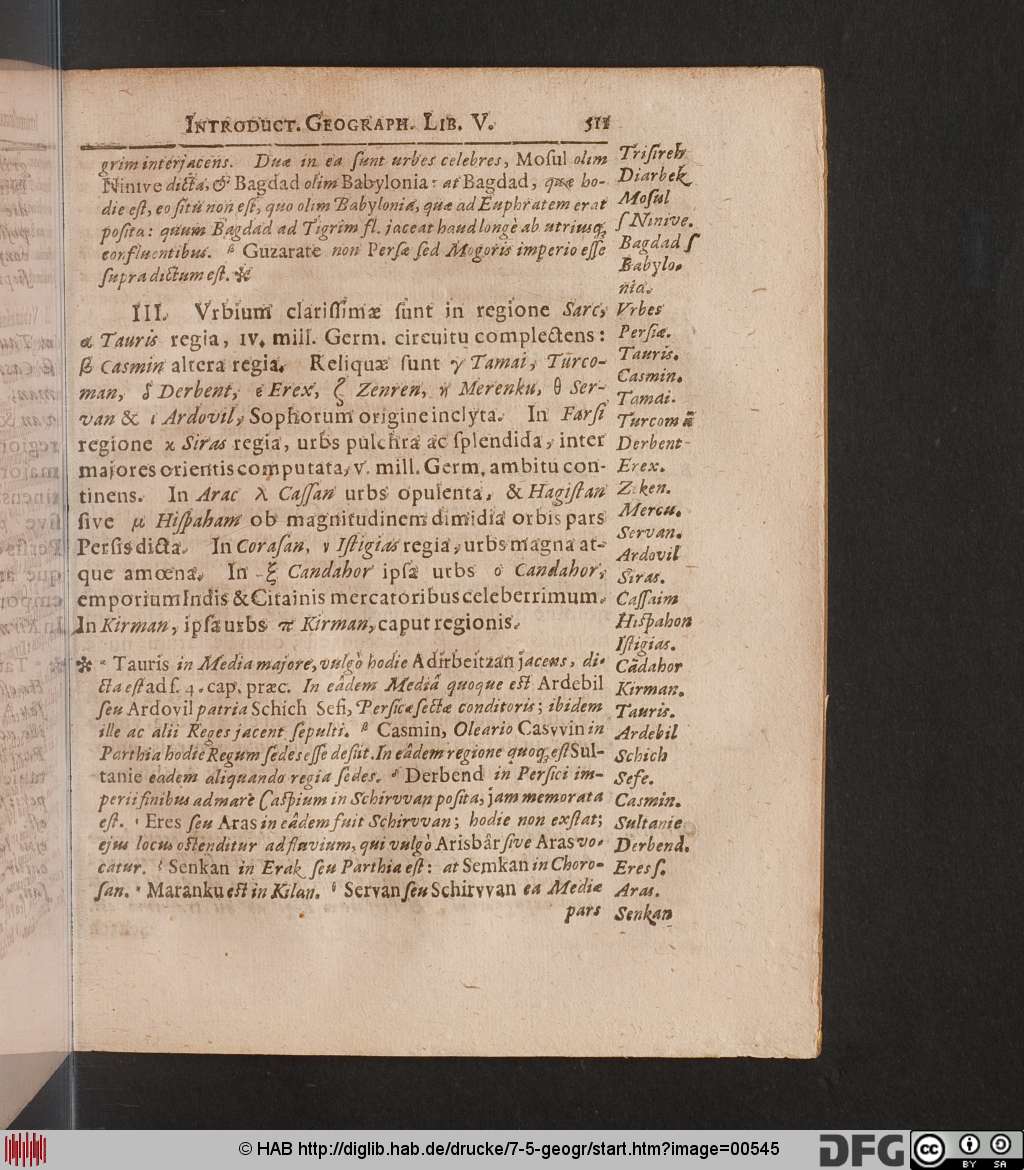 INTRODUCT. GEOGRAPH. LIB. V. 511
grim interjacens. Duæ in ea ſunt urbes celebres, Moſul olim
Ninive dicta, & Bagdad olim Babylonia: at Bagdad, quæ ho-
die eſt, eo ſitu non eſt, quo olim Babylonia, quæ ad Euphratem erat
poſita: quum Bagdad ad Tigrim fl. jaceat haud longè ab utriusq;
confluentibus. β Guzarate non Perſæ ſed Mogoris imperio eſſe
ſupra dictum eſt. ✻
III. Vrbium clariſſimæ ſunt in regione Sarc,
α Tauris regia, IV. mill. Germ. circuitu complectens:
β Casmin altera regia. Reliquæ ſunt γ Tamai, Turco-
man, δ Derbent, ε Erex, ζ Zenren, η Merenku, θ Ser-
van & ι Ardovil, Sophorum origine inclyta. In Farſi
regione κ Siras regia, urbs pulchra ac ſplendida, inter
majores orientis computata, V. mill. Germ. ambitu con-
tinens. In Arac λ Caſſan urbs opulenta, & Hagiſtan
ſive μ Hiſpaham ob magnitudinem dimidia orbis pars
Perſis dicta. In Coraſan, ν Iſtigias regia, urbs magna at-
que amœna. In ξ Candahor ipſa urbs ο Candahor,
emporium Indis & Citainis mercatoribus celeberrimum.
In Kirman, ipſa urbs π Kirman, caput regionis.
✻ α Tauris in Media majore, vulgò hodie Adirbeitzan jacens, di-
cta eſt ad ſ. 4. cap. præc. In eâdem Mediâ quoque eſt Ardebil
ſeu Ardovil patria Schich Sefi, Perſicæ ſectæ conditoris; ibidem
ille ac alii Reges jacent ſepulti. β Casmin, Oleario Casvvin in
Parthia hodie Regum ſedes eſſe deſiit. In eâdem regione quoq; eſt Sul-
tanie eadem aliquando regia ſedes. δ Derbend in Perſici im-
perii finibus ad mare Caſpium in Schirvvan poſita, jam memorata
eſt. ε Eres ſeu Aras in eâdem fuit Schirvvan; hodie non exſtat;
ejus locus oſtenditur ad fluvium, qui vulgò Arisbâr ſive Aras vo-
catur. ζ Senkan in Erak ſeu Parthia eſt: at Semkan in Choro-
ſan. η Maranku eſt in Kilan. θ Servan ſeu Schirvvan ea Mediæ
pars
Triſireh
Diarbek
Moſul
ſ Ninive.
Bagdad ſ
Babylo-
nia.
Vrbes
Perſiæ.
Tauris.
Casmin.
Tamai.
Turcomā
Derbent
Erex.
Ziken.
Mercu.
Servan.
Ardovil
Siras.
Caſſaim
Hiſpahon
Iſtigias.
Cādahor
Kirman.
Tauris.
Ardebil
Schich
Sefe.
Casmin.
Sultanie
Derbend.
Eres ſ.
Aras.
Senkan
© HAB http://diglib.hab.de/drucke/7-5-geogr/start.htm?image=00545
DFG
cc
BY SA